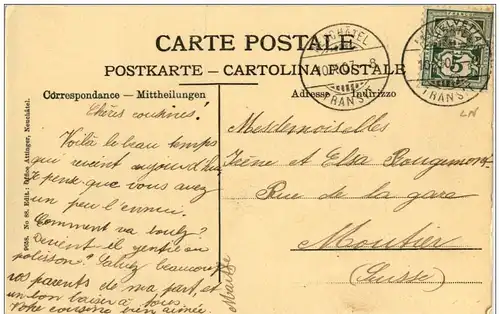 CARTE POSTALE
POSTKARTE — CARTOLINA POSTALE
Correspondance — Mittheilungen
Adresse — Indirizzo
NEUCHÂTEL
TRANS
5
Chères cousines!
Voilà le beau temps
qui revient aujourd'hui
Je pense que vous avez
un peu l'ennui.
Comment va
Devient il gentil ou
polisson? Saluez beaucoup
vos parents de ma part, et
un bon baiser à tous.
Votre cousine bien aimée
Mesdemoiselles
Irène et Elsa Rougemont
Rue de la gare
Moutier
(Suisse)
Edit. Attinger, Neuchâtel.